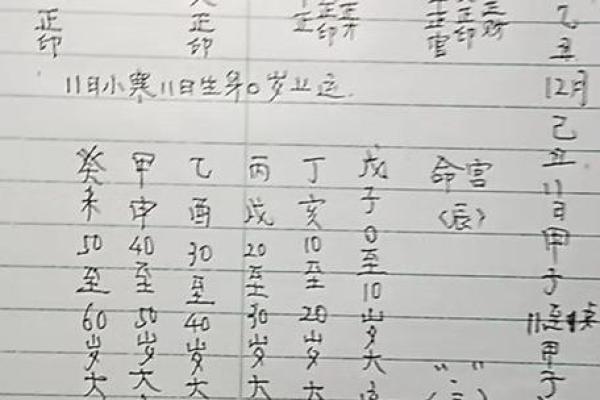 乙丑
12月己丑
11日甲子
甲子
正官
正印
正财
正印
正印
正印
11日小寒11日生年0岁上运.
命宫
(辰)
戊子0至10岁大
丁亥10至20岁大
丙戌20至30岁大
乙酉30至40岁大
甲申40至50岁大
癸未50至60岁大